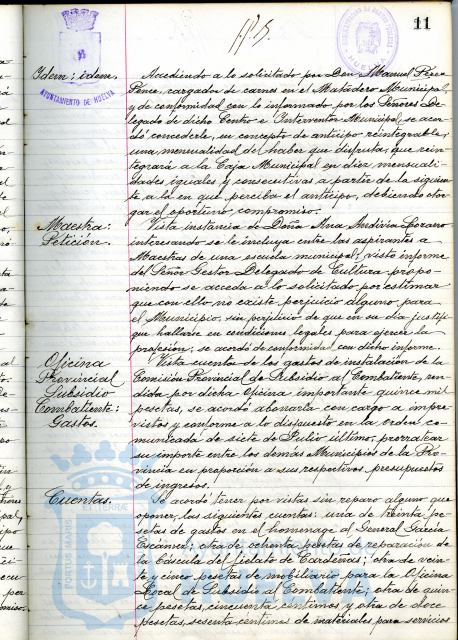 11
AYUNTAMIENTO DE HUELVA
Idem: idem.
Accediendo a lo solicitado por Don Manuel Pérez
Ponce, cargador de carnes en el Matadero Municipal,
y de conformidad con lo informado por los Señores De-
legado de dicho Centro e Interventor Municipal, se acor-
dó concederle, en concepto de anticipo reintegrable,
una mensualidad del haber que disfruta, que rein-
tegrará a la Caja Municipal en diez mensuali-
dades iguales y consecutivas a partir de la siguien-
te, a la en que perciba el anticipo, debiendo otor-
gar el oportuno compromiso.
Maestra:
Petición.
Vista instancia de Doña Ana Andivia Soriano
interesando se le incluya entre las aspirantes a
Maestras de una escuela municipal, visto informe
del Señor Gestor Delegado de Cultura propo-
niendo se acceda a lo solicitado por estimar
que con ello no existe perjuicio alguno para
el Municipio, sin perjuicio de que en su dia justifi-
que hallarse en condiciones legales para ejercer la
profesión, se acordó de conformidad con dicho informe.
Oficina
Provincial
Subsidio
Combatiente:
Gastos.
Vista cuenta de los gastos de instalación de la
Comisión Provincial de Subsidio al Combatiente, ren-
dida por dicha Oficina importante quince mil
pesetas, se acordó abonarla con cargo a impre-
vistos y conforme a lo dispuesto en la orden co-
municada de siete de Julio último, prorratear
su importe entre los demás Municipios de la Pro-
vincia en proporción a sus respectivos presupuestos
de ingresos.
Cuentas.
Se acordó tener por vistas sin reparo alguno que
oponer, las siguientes cuentas: una de treinta pe-
setas de gastos en el homenaje al General García
Escámez; otra de ochenta pesetas de reparación de
la báscula del Fielato de Cardeñas; otra de vein-
te y cinco pesetas de mobiliario para la Oficina
Local de Subsidio al Combatiente; otra de quin-
ce pesetas, cincuenta centimos y otra de doce
pesetas, sesenta centimos de materiales para servicios